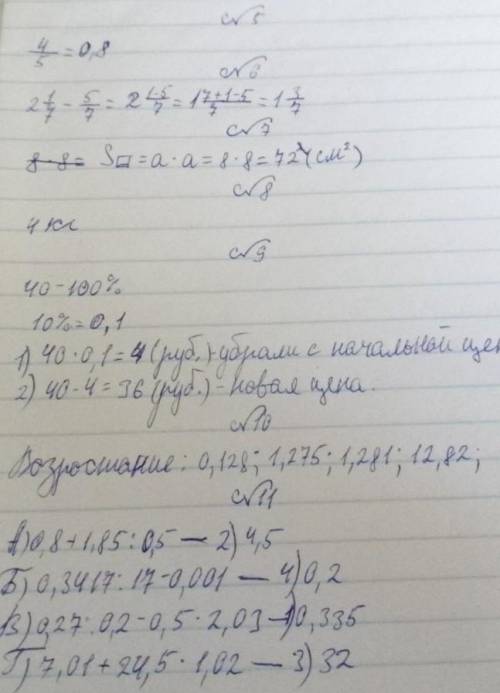 №5
4/5 = 0,8
№6
2 1/7 - 5/7 = 2 1-5/7 = 1 7+1-5/7 = 1 3/7
№7
8·8= S□ = a·a = 8·8 = 72 (см²)
№8
4 кг
№9
40-100%
10%=0,1
1) 40·0,1=4 (руб.)-убрали с начальной цен
2) 40-4=36 (руб.)-новая цена.
№10
Возростание: 0,128; 1,275; 1,281; 12,82;
№11
А) 0,8+1,85:0,5 — 2) 4,5
Б) 0,3417:17-0,001 — 4) 0,2
В) 0,27:0,2-0,5·2,03 — 1) 0,335
Г) 7,01+24,5·1,02 — 3) 32